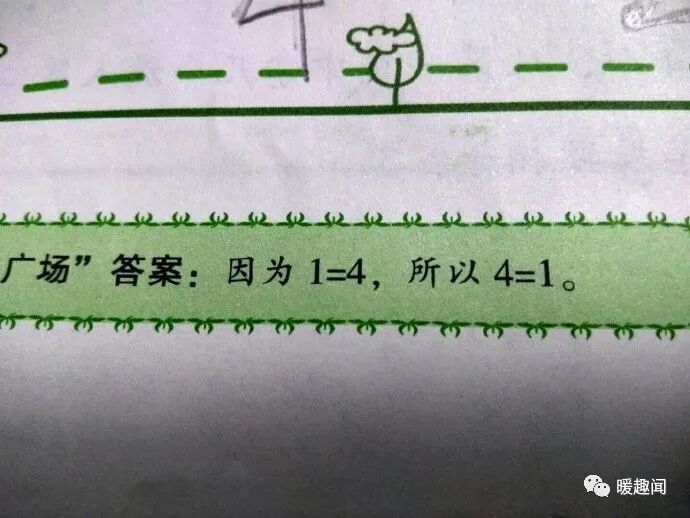 4
广场”答案：因为 1=4，所以 4=1。
暖趣闻